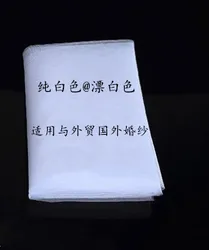 纯白色@漂白色
适用与外贸国外婚纱